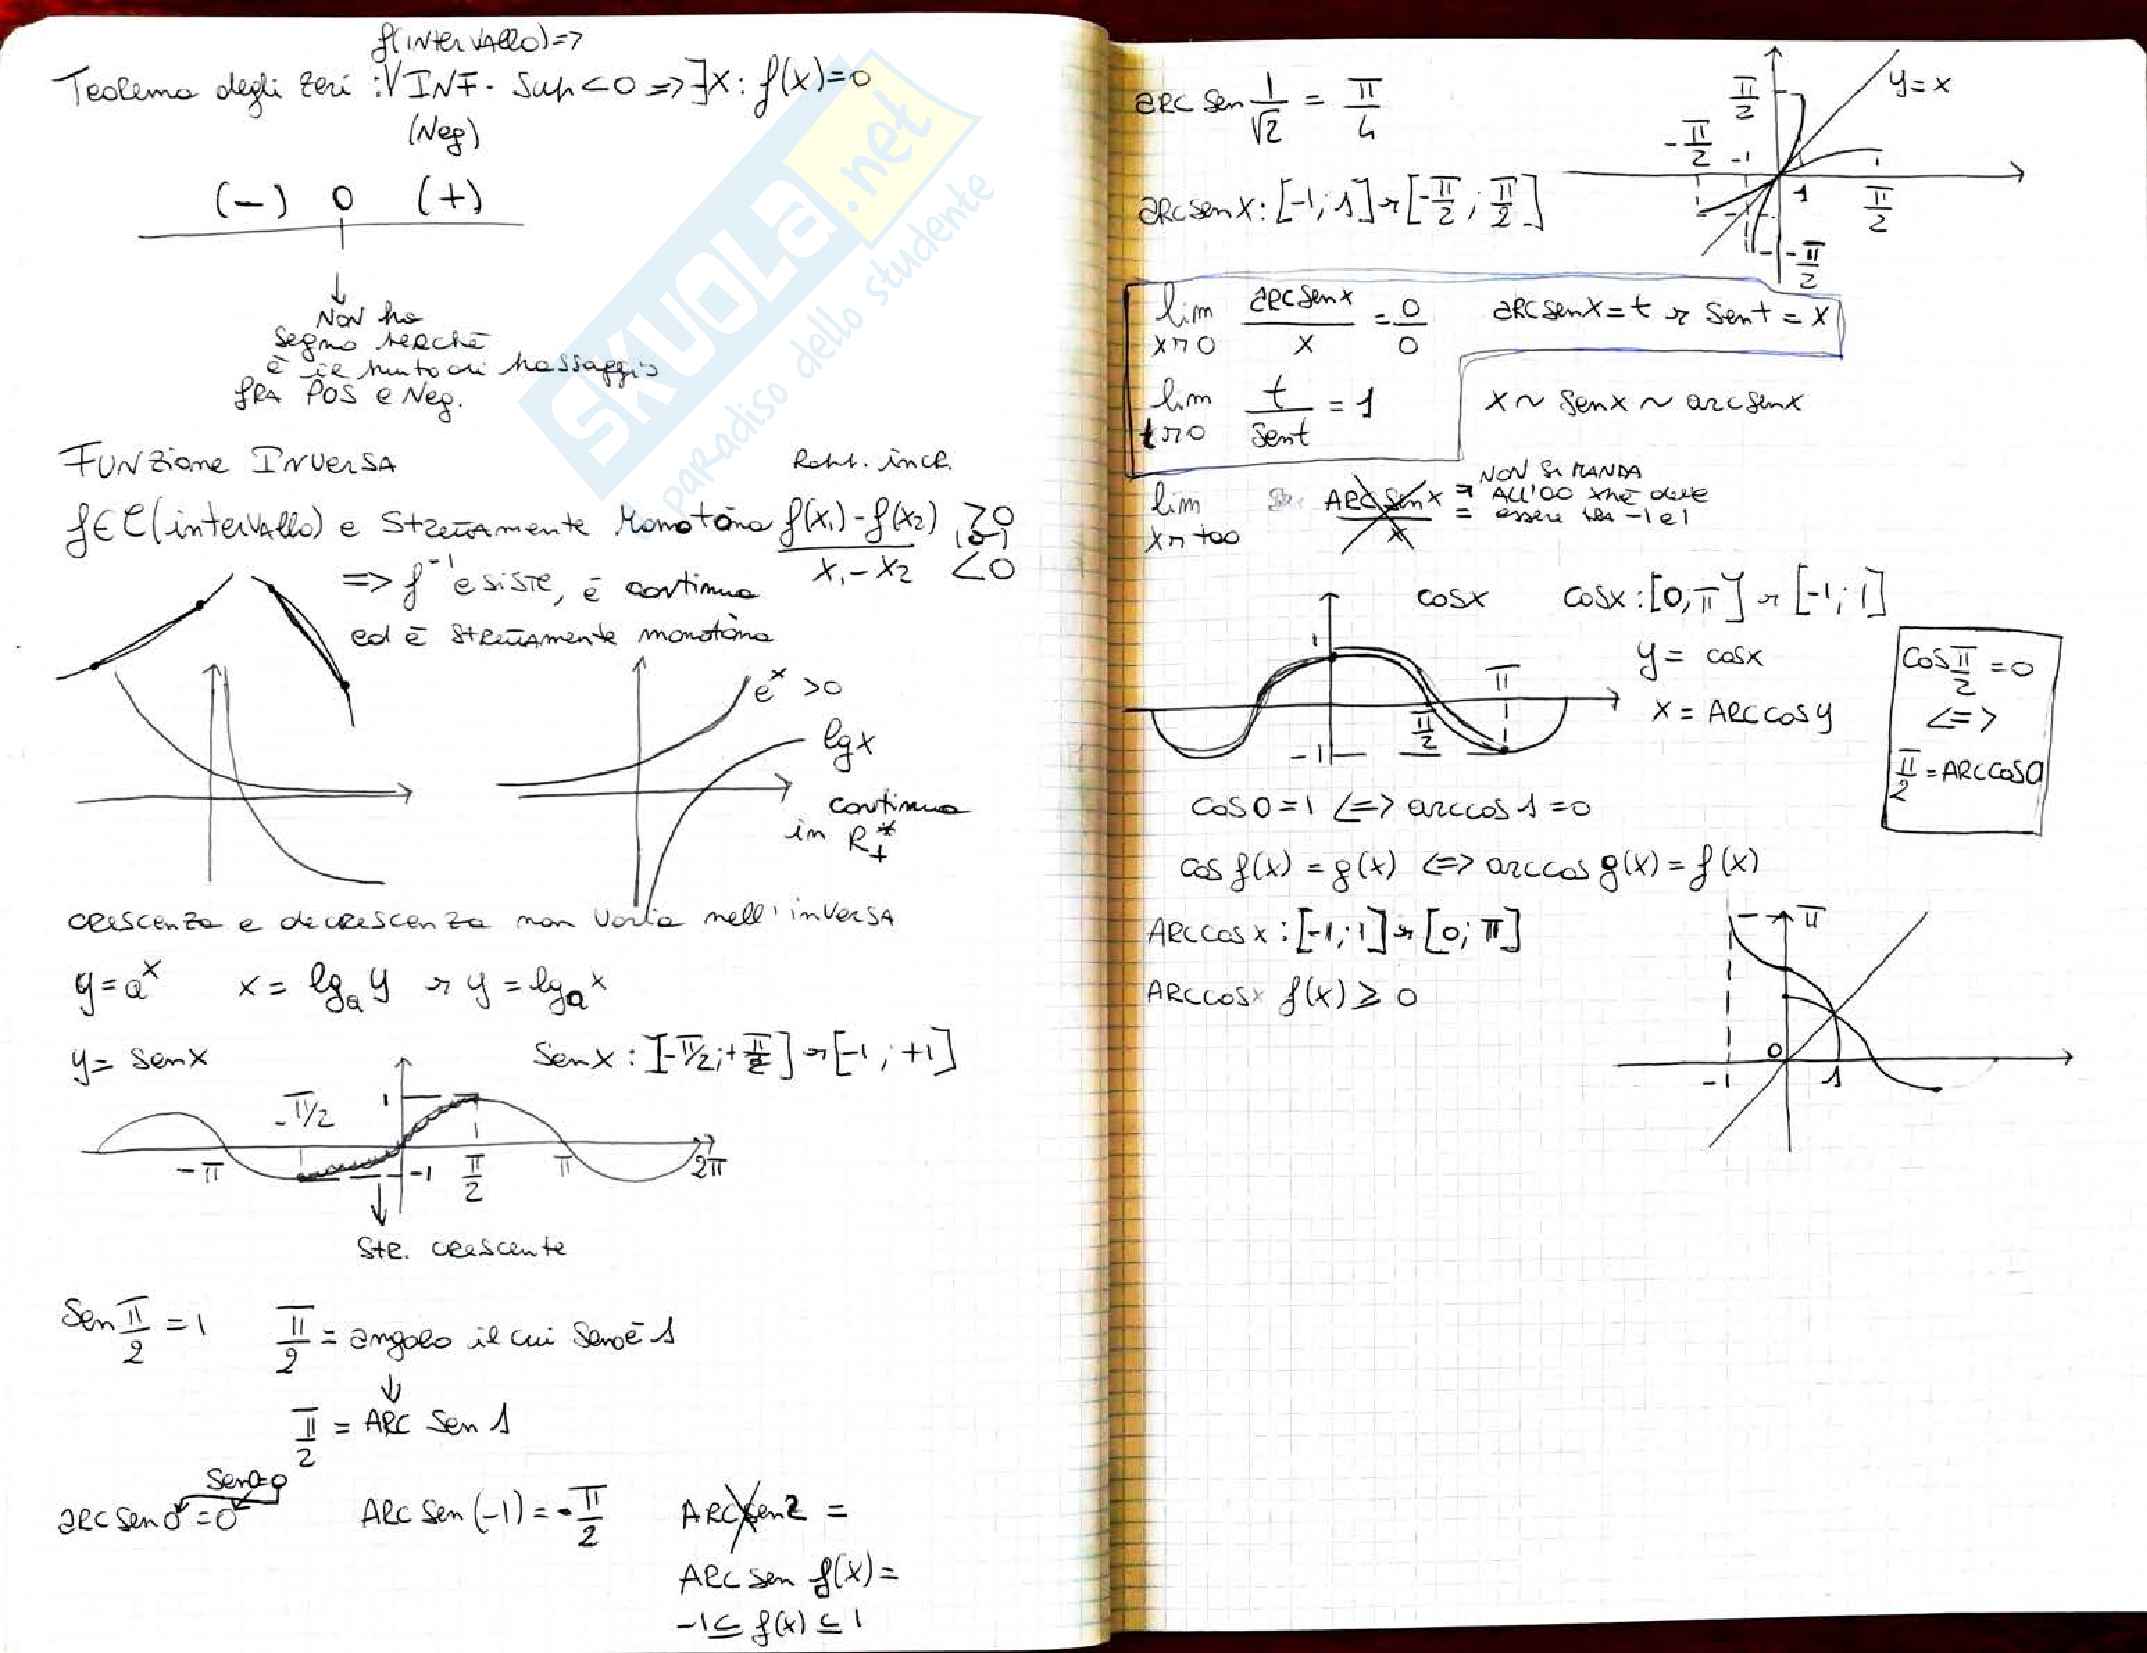 f(intervallo)=>
Teorema degli zeri : INF. Sup<0 => ∃x: f(x)=0
(Neg)
(-) 0 (+)
↓
NON ha
segno perchè
è il punto di passaggio
fra POS e Neg.
Funzione Inversa
Rapp. incr.
f∈C(intervallo) e strettamente monotòna f(x₁)-f(x₂) / x₁-x₂ >0 (o) <0
=> f⁻¹ esiste, è continua
ed è strettamente monotòna
eˣ >0
lgx
continua
in R₊*
crescenza e decrescenza non varia nell'inversa
y=aˣ x = lgₐ y → y = lgₐ x
y= senx senx : [-π/2;+π/2] → [-1 ; +1]
-π/2 1
-π -1 π/2 π 2π
↓
Str. crescente
Sen π/2 = 1 π/2 = angolo il cui seno è 1
↓
π/2 = ARC Sen 1
sen0=0
arcsen0=0 ARCsen(-1)=-π/2 ARCsen2 =
ARCsen f(x)=
-1≤ f(x) ≤ 1
arcsen 1/√2 = π/4
arcsenx: [-1; 1] → [-π/2 ; π/2]
π/2 y=x
-π/2 -1 1 π/2
-π/2
lim x→0 arcsenx / x = 0/0 arcsenx=t → sent = x
lim t→0 t / sent = 1 x ~ senx ~ arcsenx
lim x→+∞ ARCsenx / x = NON SI MANDA
ALL'∞ xkè deve
essere tra -1 e 1
cosx cosx:[0;π] → [-1; 1]
1 π
π/2
-1
y= cosx
x= ARCcosy
cos π/2 = 0
<=>
π/2 = ARCcos0
cos0=1 <=> arccos1=0
cosf(x) = g(x) <=> arccosg(x)= f(x)
ARCcosx : [-1; 1] → [0; π]
ARCcosx f(x) ≥ 0
π
0
-1 1
SKUOLA.net
paradiso dello studente